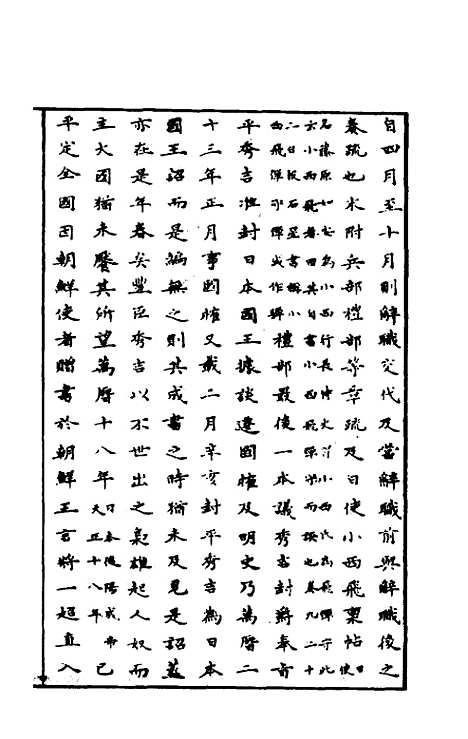 自四月至十月則解職交代及當解職前與解職後之
奏疏也末附兵部禮部等奏疏及日使小西飛稟帖日使
禮部最後一本議秀吉封爵奉旨
平秀吉准封日本國王據談遷國榷及明史乃萬曆二
十三年正月事國榷又載二月辛亥封平秀吉為日本
國王詔而是編無之則其成書之時猶未及見是詔蓋
亦在是年春矣豐臣秀吉以不世出之梟雄起人奴而
主大國猶未饜其所望萬曆十八年日本後陽成帝天正十八年已
平定全國因朝鮮使者贈書於朝鮮王言將一超直入